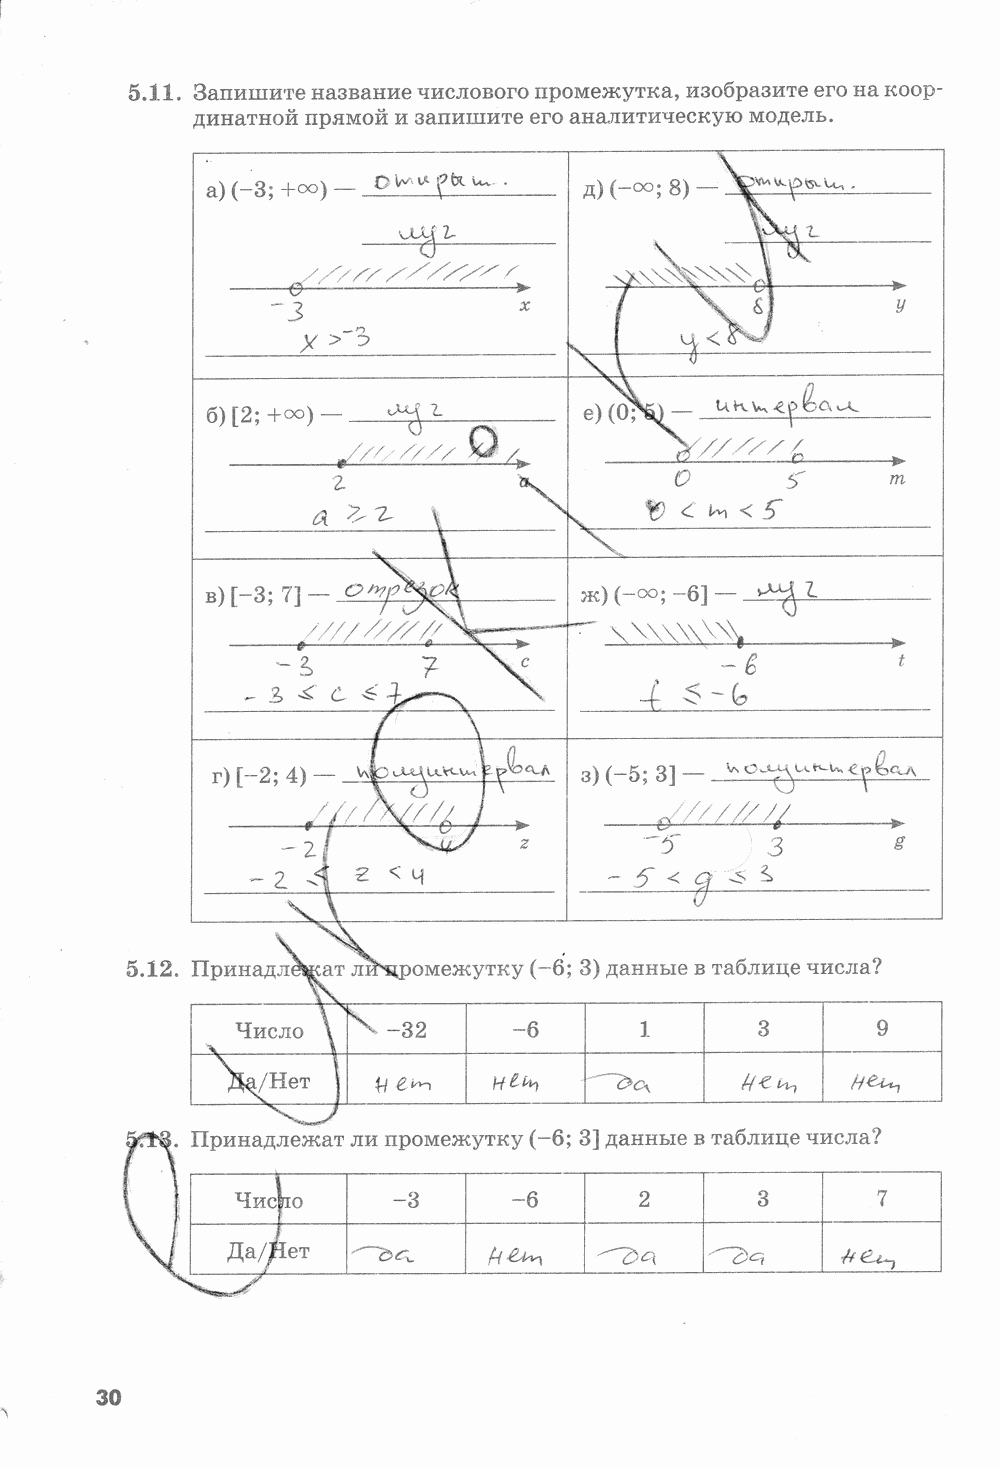 5.11. Запишите название числового промежутка, изобразите его на коор-
динатной прямой и запишите его аналитическую модель.
а) (−3; +∞) — открыт.
луг
−3 x
x > −3
д) (−∞; 8) — открыт.
луг
8 y
y < 8
б) [2; +∞) — луг
2 a
a ≥ 2
е) (0; 5) — интервал
0 5 m
0 < m < 5
в) [−3; 7] — отрезок
−3 7 c
−3 ≤ c ≤ 7
ж) (−∞; −6] — луг
−6 t
t ≤ −6
г) [−2; 4) — полуинтервал
−2 4 z
−2 ≤ z < 4
з) (−5; 3] — полуинтервал
−5 3 g
−5 < g ≤ 3
5.12. Принадлежат ли промежутку (−6; 3) данные в таблице числа?
Число −32 −6 1 3 9
Да/Нет нет нет да нет нет
5.13. Принадлежат ли промежутку (−6; 3] данные в таблице числа?
Число −3 −6 2 3 7
Да/Нет да нет да да нет
30